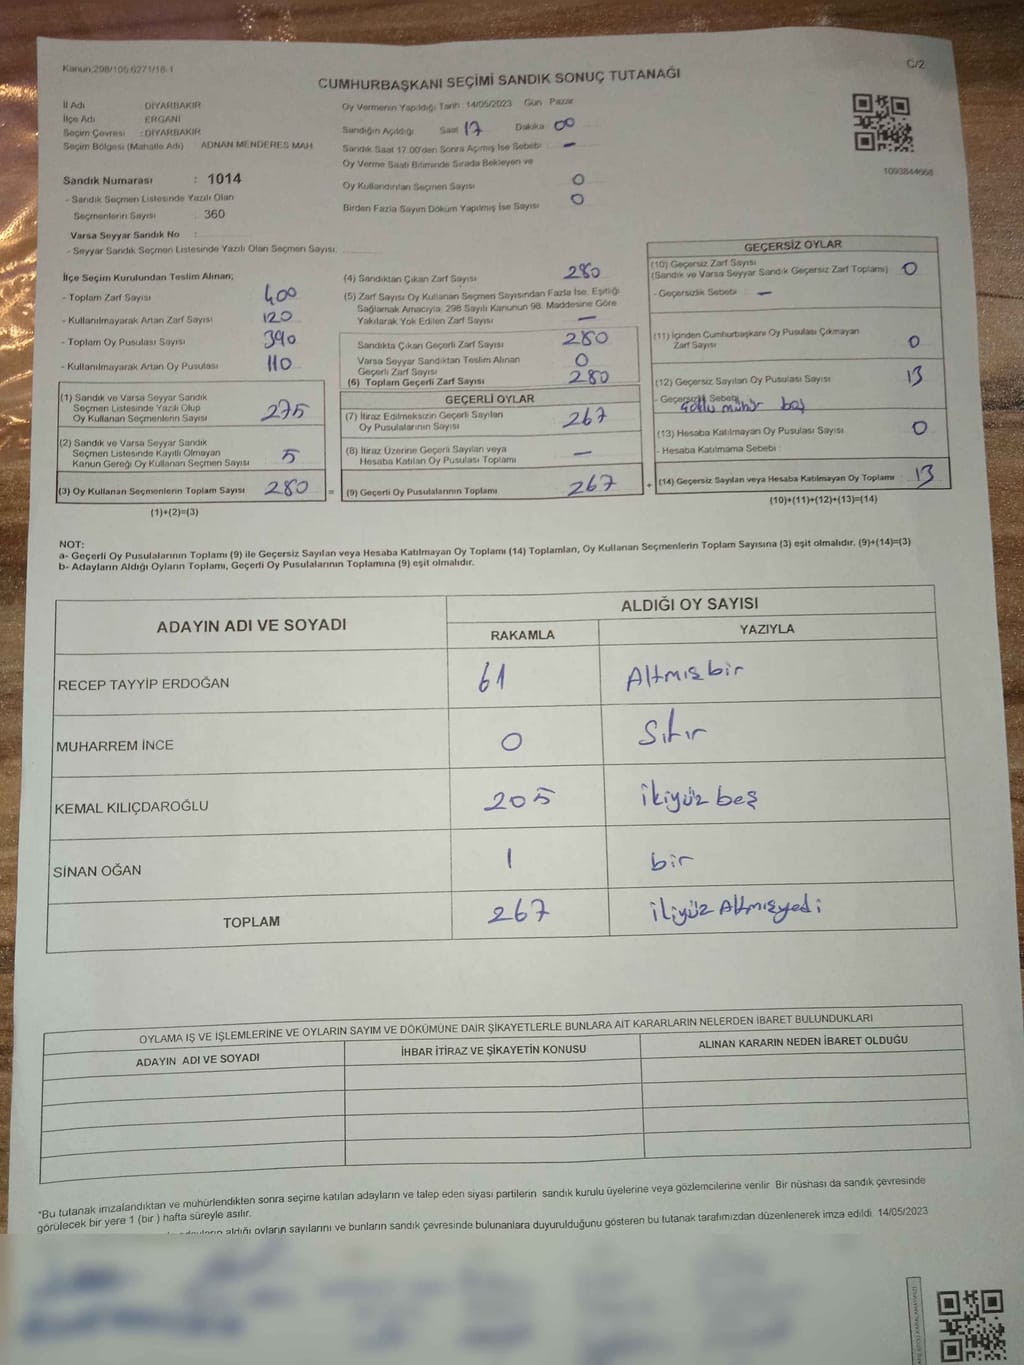 Kanun:298/105 6271/16-1
C/2
CUMHURBAŞKANI SEÇİMİ SANDIK SONUÇ TUTANAĞI
İl Adı DİYARBAKIR
İlçe Adı ERGANİ
Seçim Çevresi : DİYARBAKIR
Seçim Bölgesi (Mahalle Adı) ADNAN MENDERES MAH
Oy Vermenin Yapıldığı Tarih : 14/05/2023 Gün Pazar
Sandığın Açıldığı Saat 17 Dakika 00
Sandık Saat 17.00'den Sonra Açımış İse Sebebi –
Oy Verme Saati Bitiminde Sırada Bekleyen ve
Oy Kullandırılan Seçmen Sayısı 0
Birden Fazla Sayım Döküm Yapılmış İse Sayısı 0
1093844668
Sandık Numarası : 1014
- Sandık Seçmen Listesinde Yazılı Olan
Seçmenlerin Sayısı : 360
Varsa Seyyar Sandık No :
- Seyyar Sandık Seçmen Listesinde Yazılı Olan Seçmen Sayısı:
İlçe Seçim Kurulundan Teslim Alınan;
- Toplam Zarf Sayısı 400
- Kullanılmayarak Artan Zarf Sayısı 120
- Toplam Oy Pusulası Sayısı 390
- Kullanılmayarak Artan Oy Pusulası 110
(1) Sandık ve Varsa Seyyar Sandık
Seçmen Listesinde Yazılı Olup
Oy Kullanan Seçmenlerin Sayısı 275
(2) Sandık ve Varsa Seyyar Sandık
Seçmen Listesinde Kayıtlı Olmayan
Kanun Gereği Oy Kullanan Seçmen Sayısı 5
(3) Oy Kullanan Seçmenlerin Toplam Sayısı 280 =
(1)+(2)=(3)
(4) Sandıktan Çıkan Zarf Sayısı 280
(5) Zarf Sayısı Oy Kullanan Seçmen Sayısından Fazla İse, Eşitliği
Sağlamak Amacıyla; 298 Sayılı Kanunun 98. Maddesine Göre
Yakılarak Yok Edilen Zarf Sayısı –
Sandıkta Çıkan Geçerli Zarf Sayısı 280
Varsa Seyyar Sandıktan Teslim Alınan
Geçerli Zarf Sayısı 0
(6) Toplam Geçerli Zarf Sayısı 280
GEÇERLİ OYLAR
(7) İtiraz Edilmeksizin Geçerli Sayılan
Oy Pusulalarının Sayısı 267
(8) İtiraz Üzerine Geçerli Sayılan veya
Hesaba Katılan Oy Pusulası Toplamı –
(9) Geçerli Oy Pusulalarının Toplamı 267 +
GEÇERSİZ OYLAR
(10) Geçersiz Zarf Sayısı
(Sandık ve Varsa Seyyar Sandık Geçersiz Zarf Toplamı) 0
- Geçersizlik Sebebi –
(11) İçinden Cumhurbaşkanı Oy Pusulası Çıkmayan
Zarf Sayısı 0
(12) Geçersiz Sayılan Oy Pusulası Sayısı 13
- Geçersizlik Sebebi mühür boş
(13) Hesaba Katılmayan Oy Pusulası Sayısı 0
- Hesaba Katılmama Sebebi :
(14) Geçersiz Sayılan veya Hesaba Katılmayan Oy Toplamı 13
(10)+(11)+(12)+(13)=(14)
NOT:
a- Geçerli Oy Pusulalarının Toplamı (9) ile Geçersiz Sayılan veya Hesaba Katılmayan Oy Toplamı (14) Toplamları, Oy Kullanan Seçmenlerin Toplam Sayısına (3) eşit olmalıdır. (9)+(14)=(3)
b- Adayların Aldığı Oyların Toplamı, Geçerli Oy Pusulalarının Toplamına (9) eşit olmalıdır.
ADAYIN ADI VE SOYADI ALDIĞI OY SAYISI
RAKAMLA YAZIYLA
RECEP TAYYİP ERDOĞAN 61 Altmışbir
MUHARREM İNCE 0 Sıfır
KEMAL KILIÇDAROĞLU 205 ikiyüz beş
SİNAN OĞAN 1 bir
TOPLAM 267 ikiyüz Altmışyedi
OYLAMA İŞ VE İŞLEMLERİNE VE OYLARIN SAYIM VE DÖKÜMÜNE DAİR ŞİKAYETLERLE BUNLARA AİT KARARLARIN NELERDEN İBARET BULUNDUKLARI
ADAYIN ADI VE SOYADI İHBAR İTİRAZ VE ŞİKAYETİN KONUSU ALINAN KARARIN NEDEN İBARET OLDUĞU
*Bu tutanak imzalandıktan ve mühürlendikten sonra seçime katılan adayların ve talep eden siyasi partilerin sandık kurulu üyelerine veya gözlemcilerine verilir. Bir nüshası da sandık çevresinde
görülecek bir yere 1 (bir ) hafta süreyle asılır.
aldığı oyların sayılarını ve bunların sandık çevresinde bulunanlara duyurulduğunu gösteren bu tutanak tarafımızdan düzenlenerek imza edildi. 14/05/2023